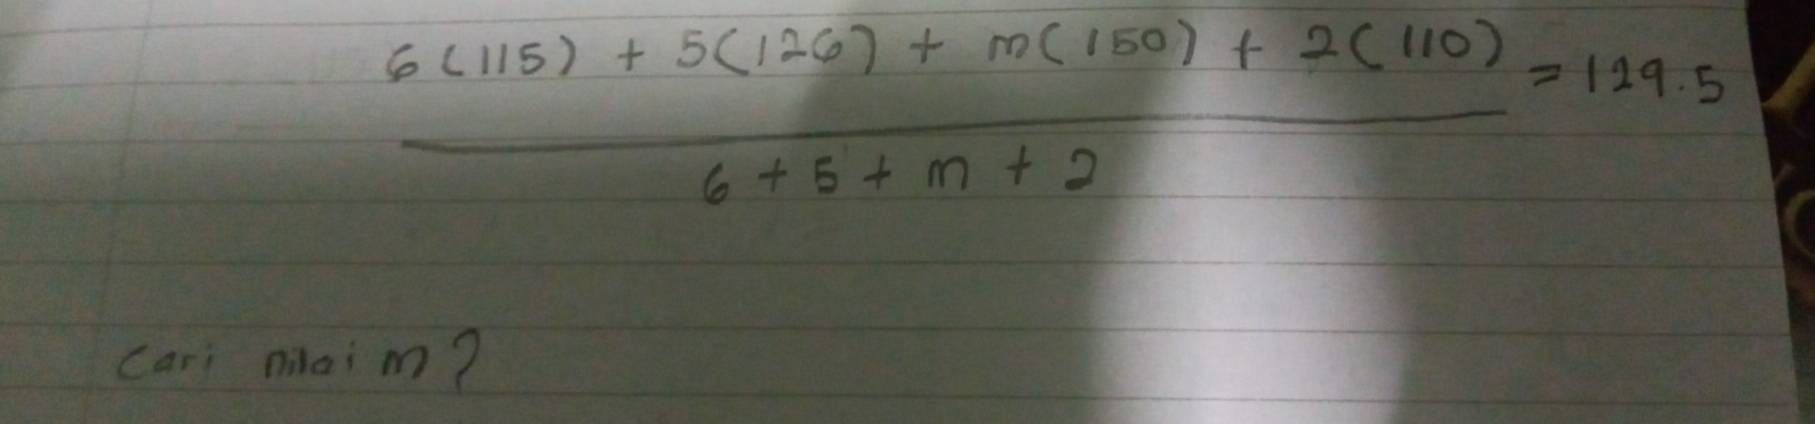 6(115) + 5(126) + m(150) + 2(110) = 129.5
6 + 5 + m + 2
Cari nilai m?